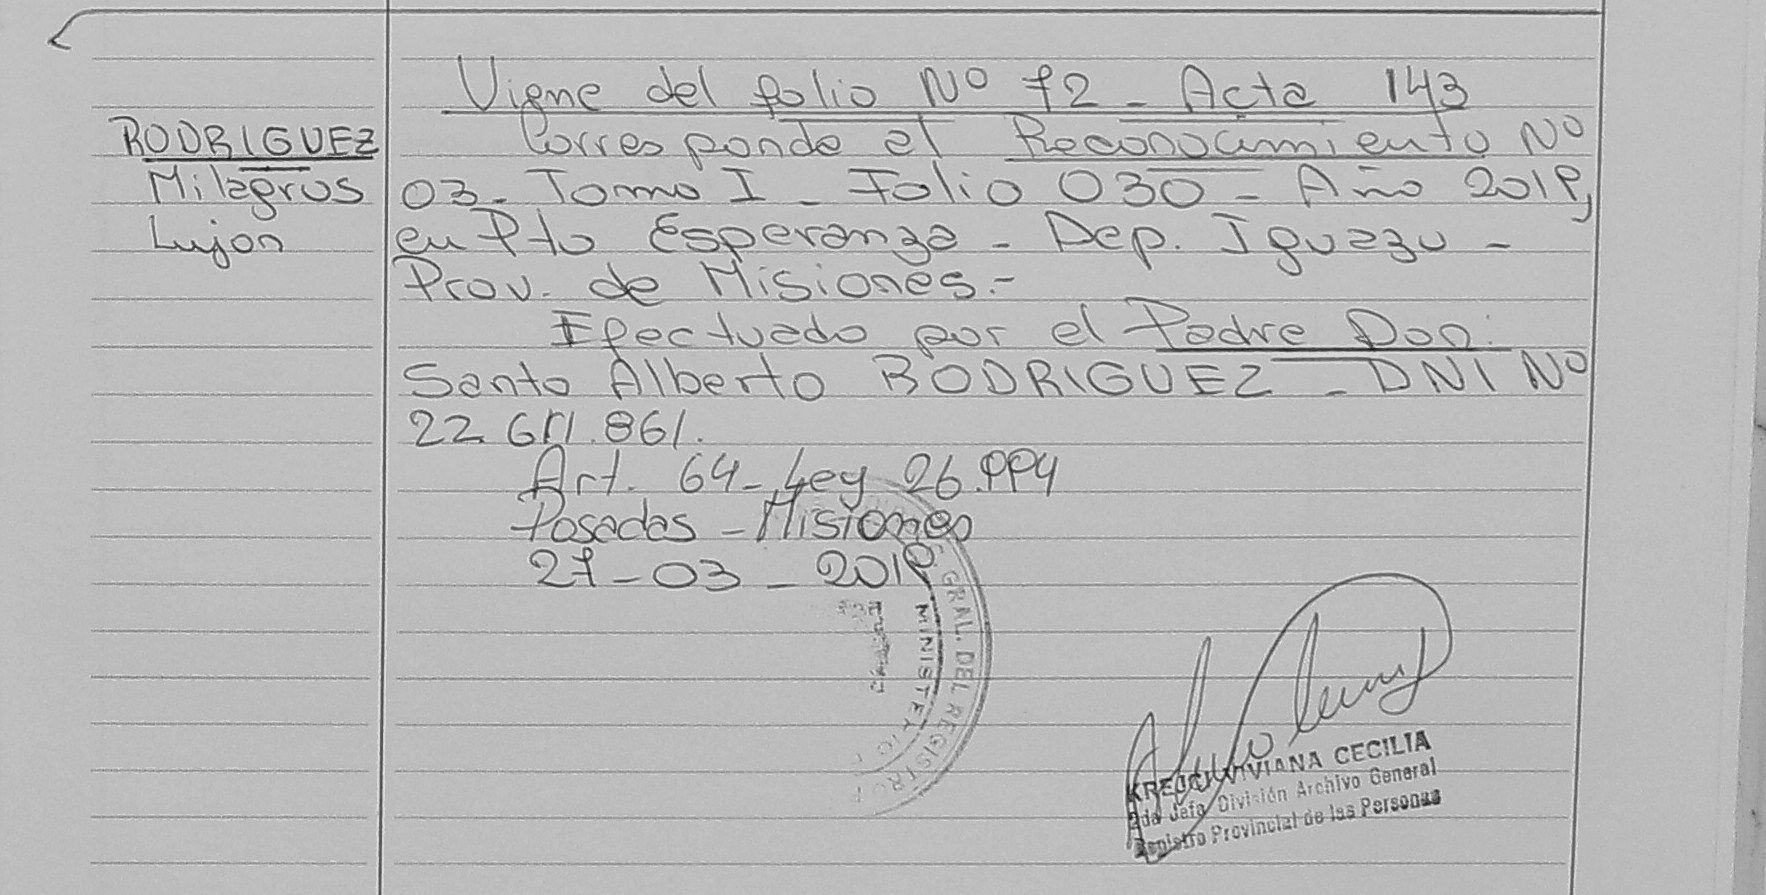 Viene del folio Nº 72 - Acta 143
RODRIGUEZ
Milagros
Lujan
Corresponde al Reconocimiento Nº
03 - Tomo I - Folio 030 - Año 2019,
en Pto Esperanza - Dep. Iguazu -
Prov. de Misiones.-
Efectuado por el Padre Don:
Santo Alberto RODRIGUEZ - DNI Nº
22. .861.
Art. 64 - Ley 26.994
Posadas - Misiones
27 - 03 - 2019
GRAL. DEL REGISTRO
MINISTERIO
VIVIANA CECILIA
2da Jefa División Archivo General
Registro Provincial de las Personas